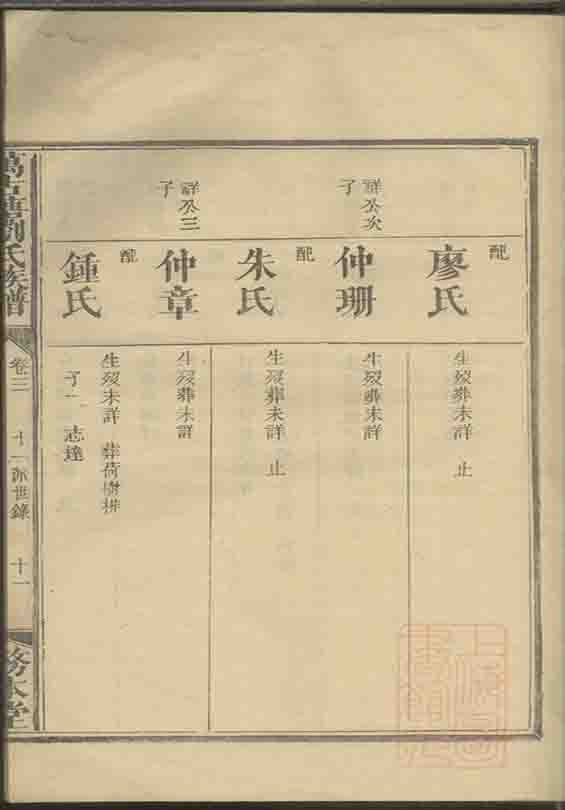 配
廖氏
生歿葬未詳 止
祥公次
子
仲珊
生歿葬未詳
配
朱氏
生歿葬未詳 止
祥公三
子
仲章
生歿葬未詳
配
鍾氏
生歿未詳 葬荷樹排
子一 志達
劉氏族譜
卷三
十一派世錄
十一
務本堂
上海圖書館